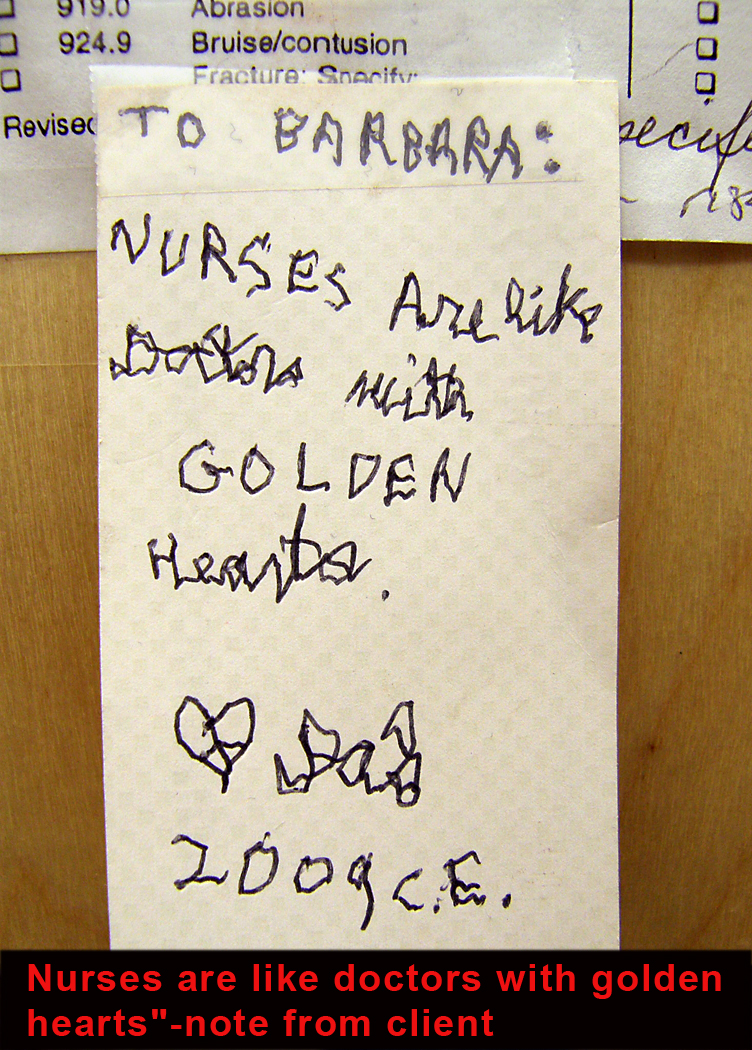 919.0 Abrasion
924.9 Bruise/contusion
Fracture: Specify:
Revised
TO BARBARA:
NURSES Are like
Doctors with
GOLDEN
Hearts.
2009 C.E.
Nurses are like doctors with golden
hearts"-note from client